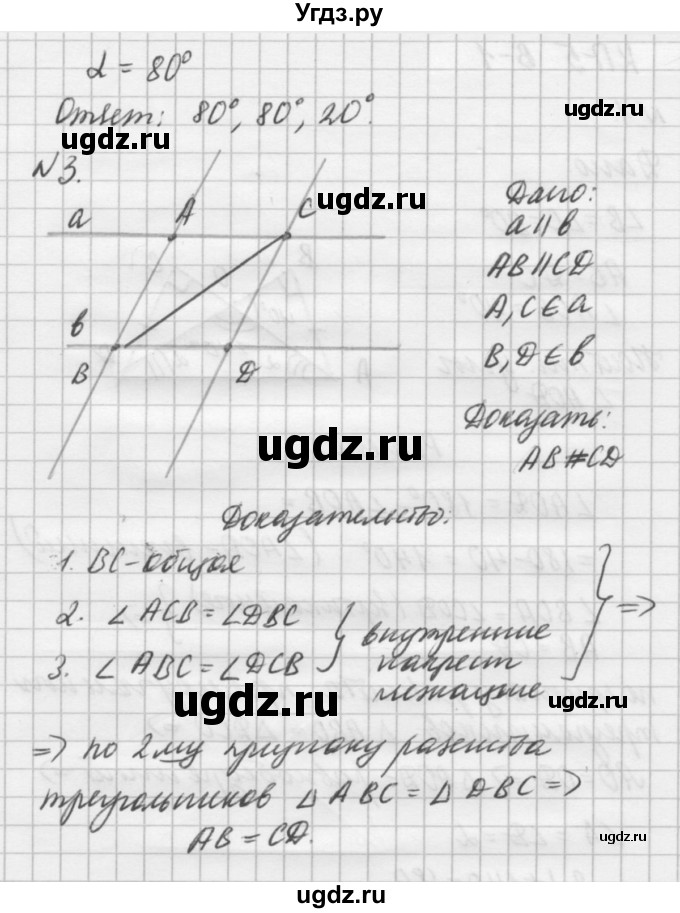 Угдз.ру
α = 80°
Ответ: 80°, 80°, 20°.
ugdz.ru
ugdz.ru
N3.
ugdz.ru
a
A
C
в
B
D
Дано:
a ∥ b
AB ∥ CD
A, C ∈ a
B, D ∈ b
Доказать:
AB # CD
ugdz.ru
Доказательство:
1. BC - общая
2. ∠ACB = ∠DBC
3. ∠ABC = ∠DCB
внутренние
накрест
лежащие
=>
ugdz.ru
=> по 2му признаку равенства
треугольников △ABC = △DBC =>
AB = CD.
ugdz.ru
ugdz.ru
ugdz.ru